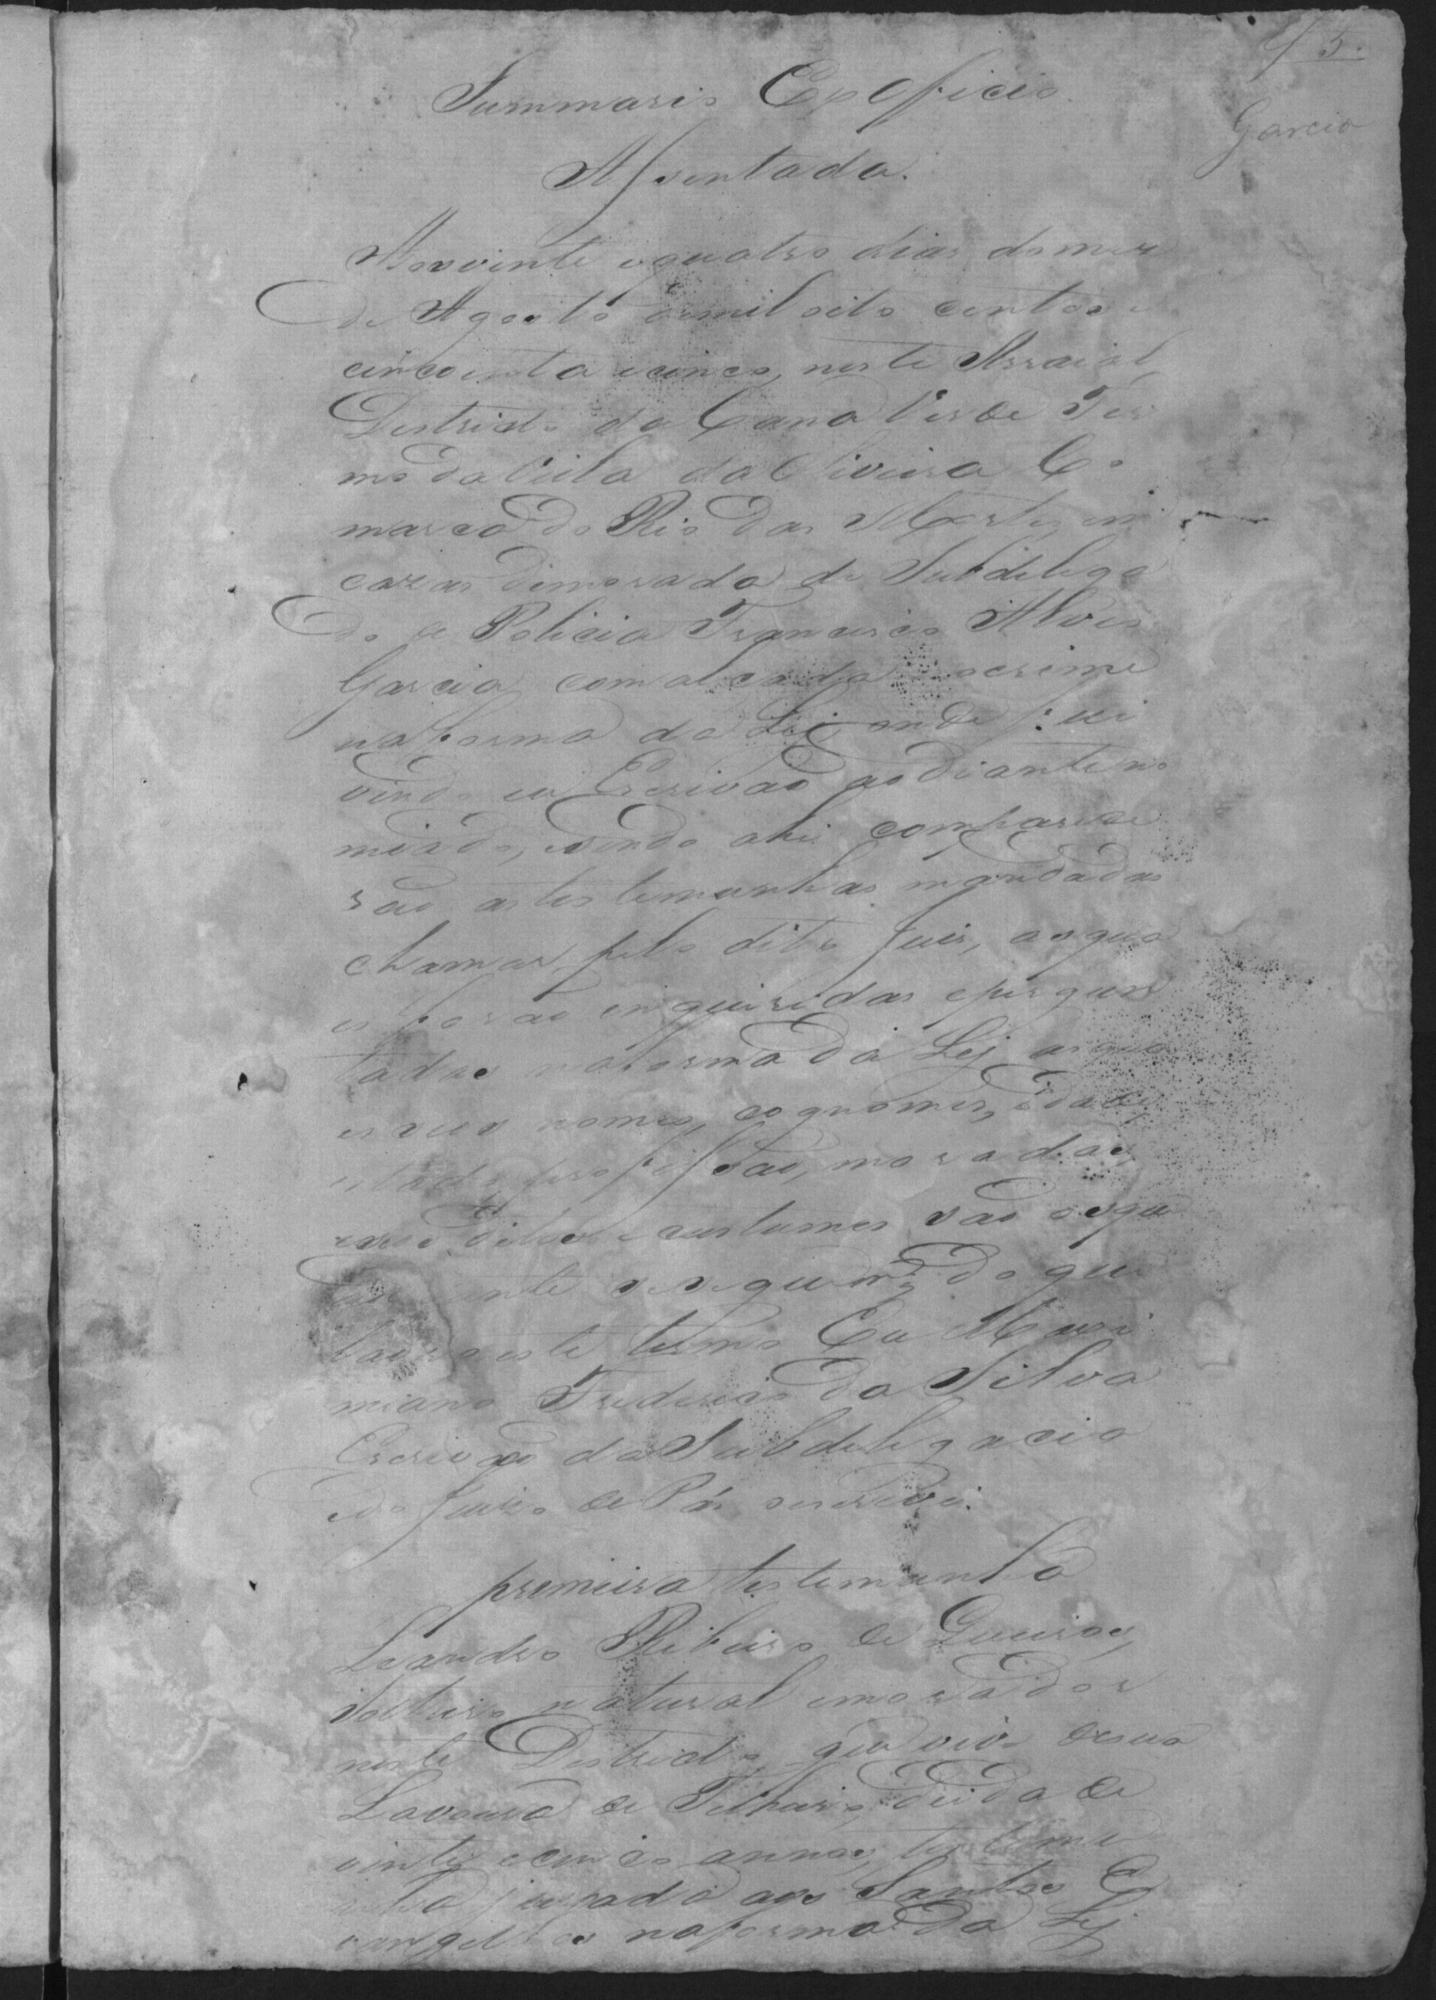 5.
Garcia
Summario Exofficio
Assentada.
Aos vinte e quatro dias do mes
de Agosto de mil oito centos e
cincoenta e cinco, neste Arraial
Destricto da Cana Verde Ter
mo da Villa da Oliveira Co
marca do Rio das Mortes em
cazas de morada do Subdelega
do de Policia Francisco Alves
Garcia com alçada no crime
na forma da Lej onde fui
vindo eu Escrivão ao diante no
miado, e sendo ahi comparece
rão as testemunhas mandadas
chamar pelo dito Juis, as qua
es forão inqueridas e pergun
tadas na forma da Lej, as qua
es seus nomes, cognomes, idades,
estado, profissão, moradas,
seus ditos e custumes são os que
ao diante se seguem do que
lavro este termo Eu Maxi
miano Frederico da Silva
Escrivão da Subdelegacia
e do Juizo de Pás o escrevi.
premeira testemunha
Leandro Ribeiro de Queiros,
solteiro natural e morador
neste Destricto, que vive de sua
Lavoura de Telheiro, de idade de
vinte e cinco annos, testemu
nha jurada aos Santos E
vangelhos na forma da Lej